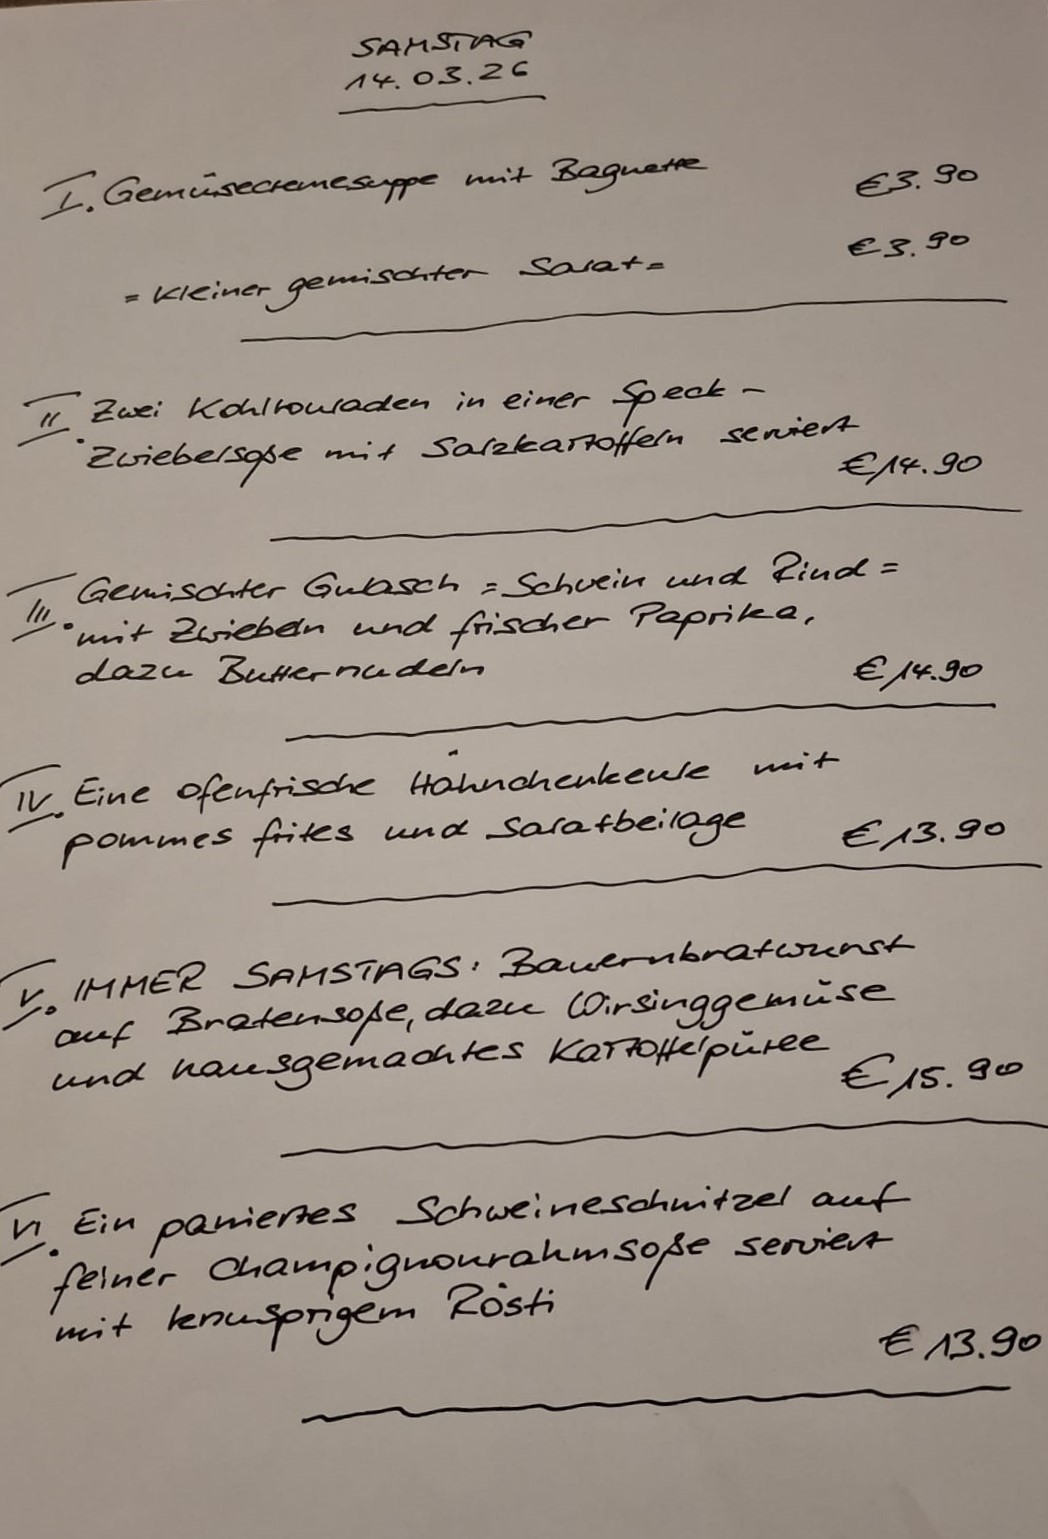 SAMSTAG
14.03.26
I. Gemüsecremesuppe mit Baguette €3.90
= kleiner gemischter Salat = €3.90
II. Zwei Kohlrouladen in einer Speck-
Zwiebelsoße mit Salzkartoffeln serviert
€14.90
III. Gemischter Gulasch = Schwein und Rind =
mit Zwiebeln und frischer Paprika,
dazu Butternudeln €14.90
IV. Eine ofenfrische Hähnchenkeule mit
pommes frites und Salatbeilage €13.90
V. IMMER SAMSTAGS: Bauernbratwurst
auf Bratensoße, dazu Wirsinggemüse
und hausgemachtes Kartoffelpüree
€15.90
VI. Ein paniertes Schweineschnitzel auf
feiner Champignonrahmsoße serviert
mit knusprigem Rösti
€13.90